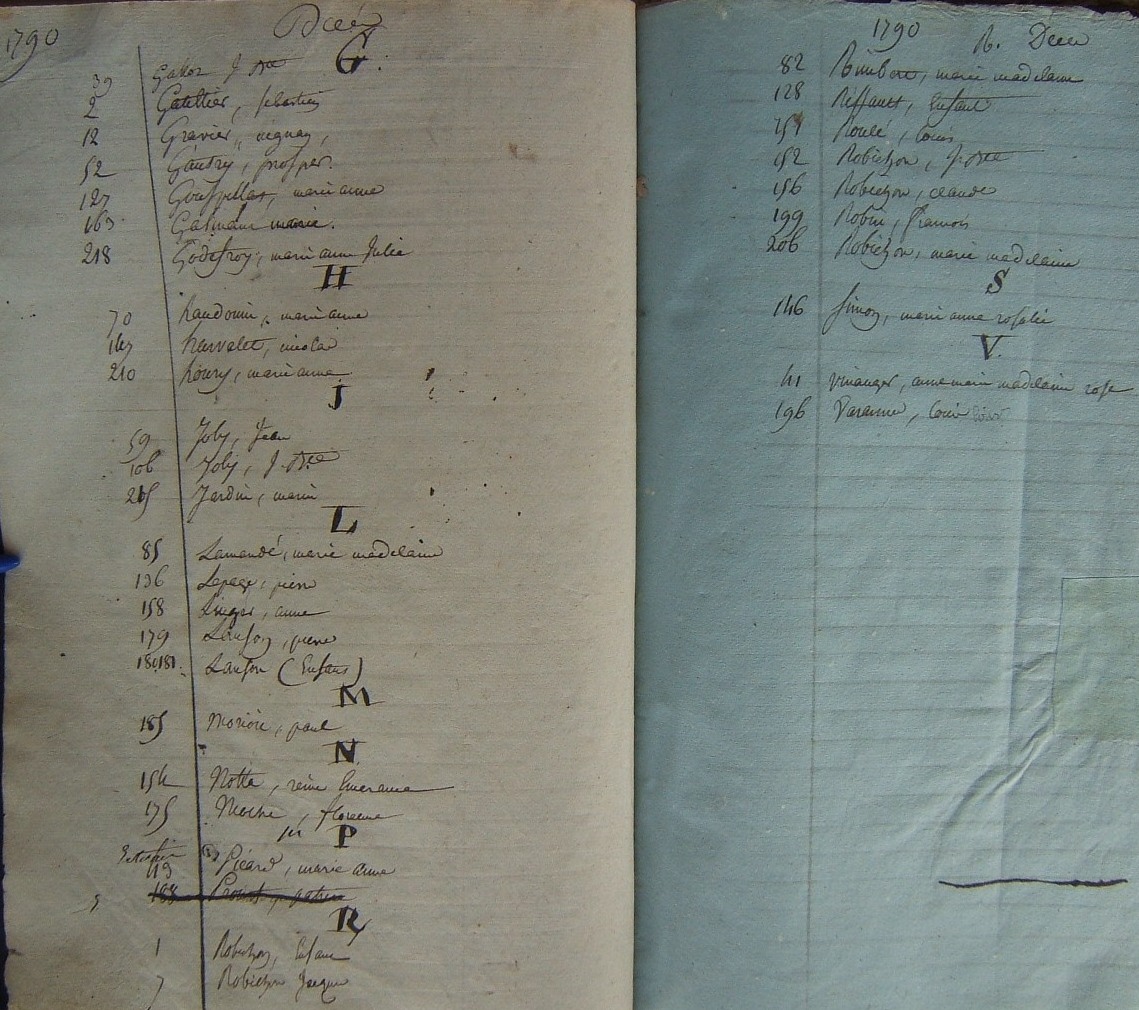 1790 Décès
G.
39 J. Bte
2 Gaultier, sébastien
12 Gravier,
52 Gaudry, prosper.
127 Goupillat, marie anne
163 marie.
218 Godefroy, marie anne Julie
H
70 haudouin, marie anne
147 harvalet, nicolas
210 houry, marie anne.
J
59 Joly, Jean
106 Joly, J. Bte
215 Jardin, marin
L
85 Lamandé, marie madelaine
136 Lepage, pierre
158 Linger, anne
179 Lanson, pierre
180.181. Lanson (Enfans)
M
185 paul
N
154 Notta, reine
175 florence
P
113 Picard, marie anne
188
5
R
1 Robichon, Enfant
7 Robichon Jacques
1790 R. Décès
82 Rimbert, marie madelaine
128 Riffault, Enfant
151 Roulé, Louis
152 Robichon, J. Bte
156 Robichon, claude
199 Robin, francois
206 Robichon, marie madelaine
S
146 Simon, marie anne rosalie
V.
41 anne marie madelaine rose
196 Varanne, Louis